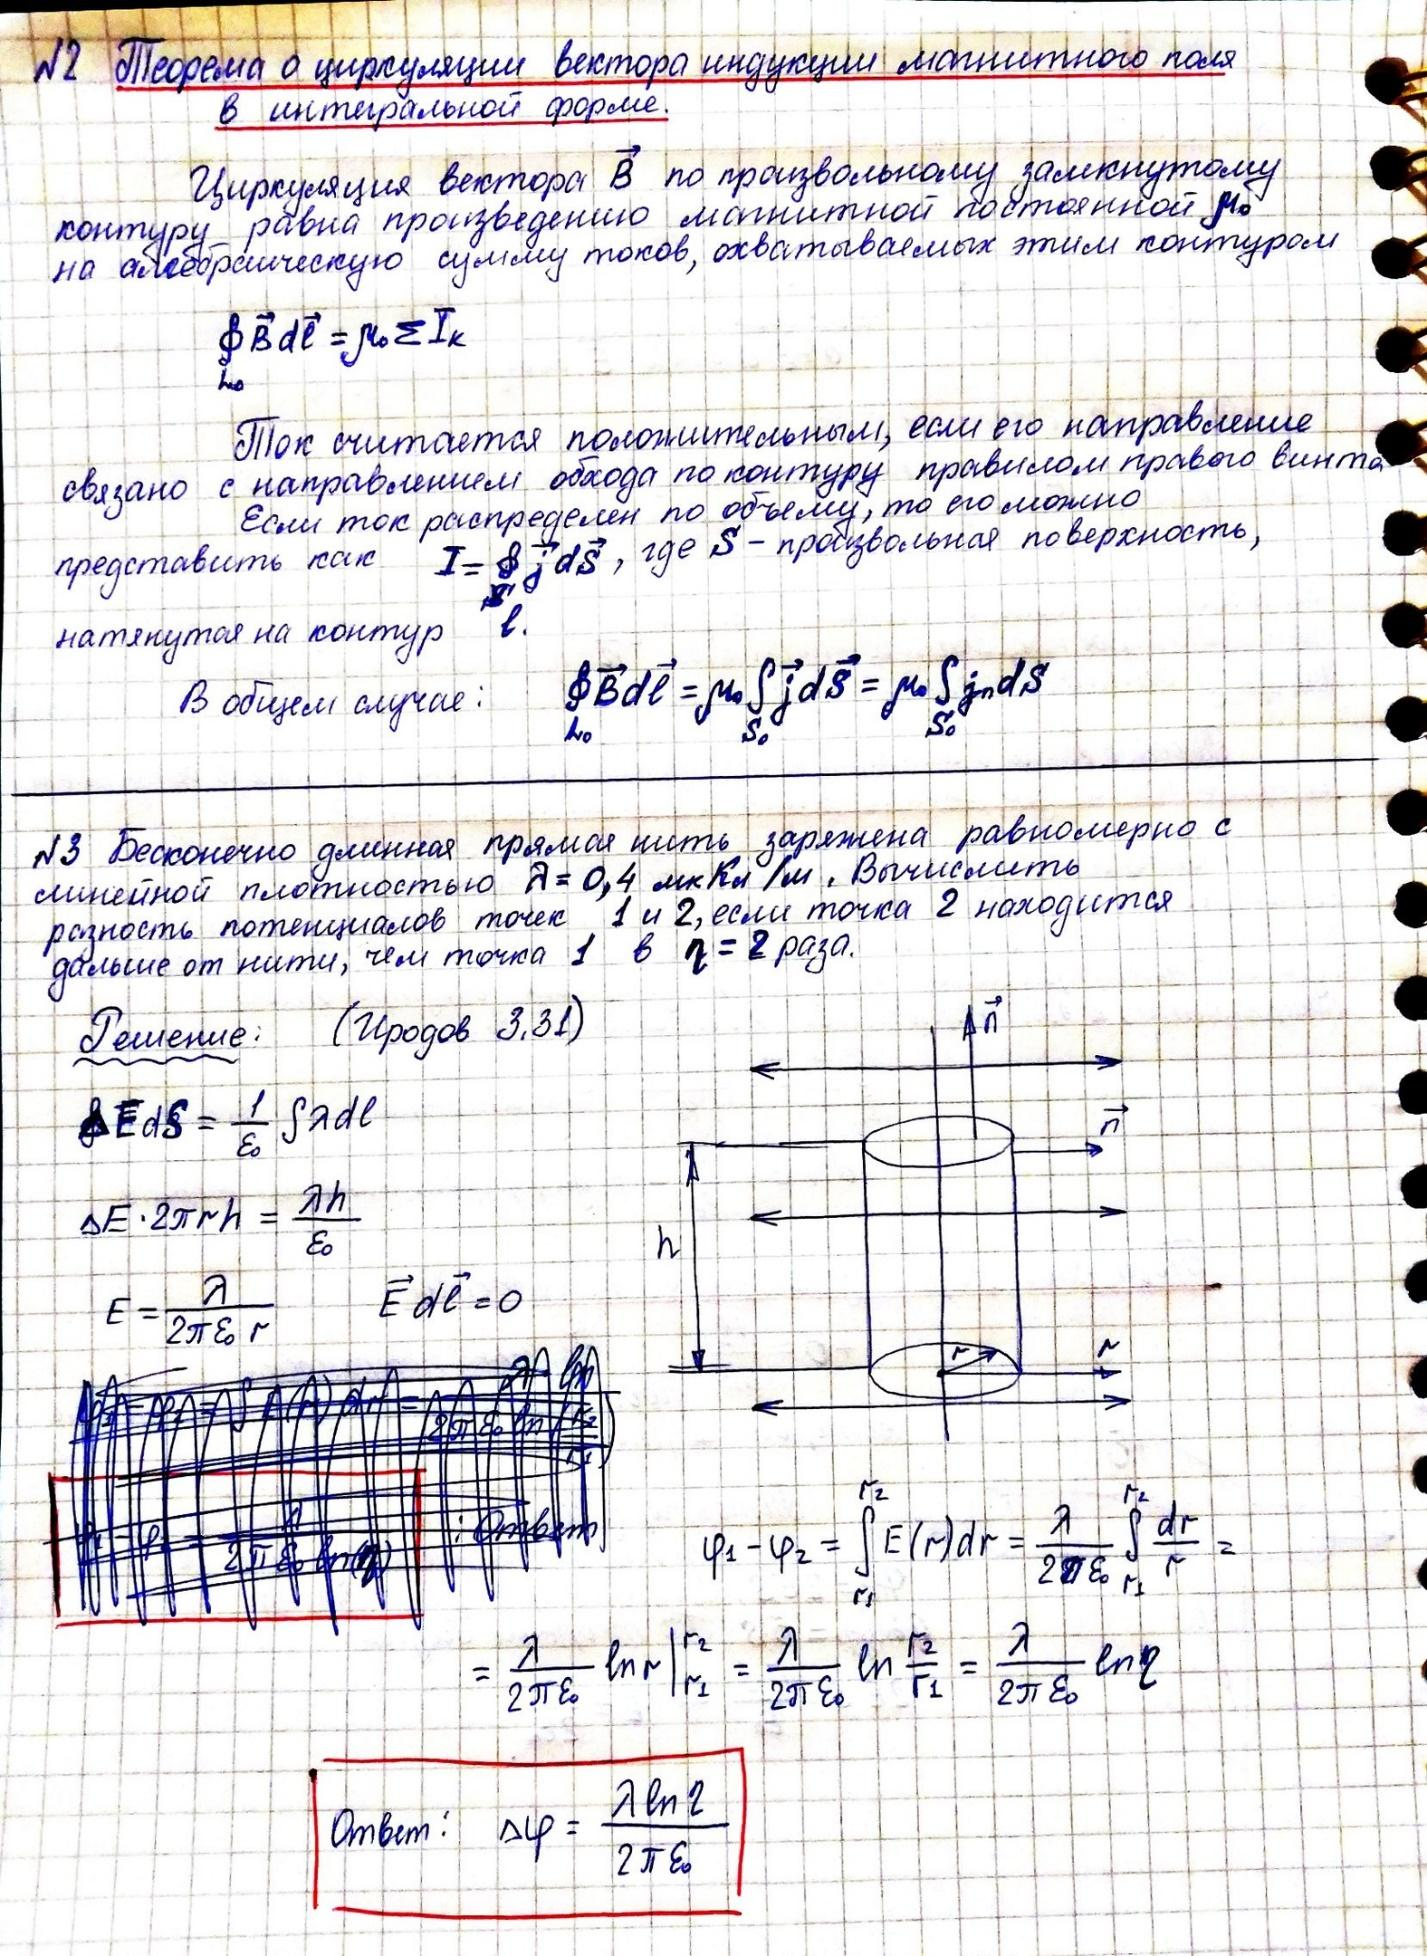 №2 Теорема о циркуляции вектора индукции магнитного поля
в интегральной форме.
Циркуляция вектора B⃗ по произвольному замкнутому
контуру равна произведению магнитной постоянной μ₀
на алгебраическую сумму токов, охватываемых этим контуром
∮_{L₀} B⃗ dl⃗ = μ₀ Σ I_k
Ток считается положительным, если его направление
связано с направлением обхода по контуру правилом правого винта
Если ток распределен по объему, то его можно
представить как I = ∮_S j⃗ dS⃗, где S – произвольная поверхность,
натянутая на контур l.
В общем случае: ∮_{L₀} B⃗ dl⃗ = μ₀ ∫_{S₀} j⃗ dS⃗ = μ₀ ∫_{S₀} jₙ dS
№3 Бесконечно длинная прямая нить заряжена равномерно с
линейной плотностью λ = 0,4 мкКл/м. Вычислить
разность потенциалов точек 1 и 2, если точка 2 находится
дальше от нити, чем точка 1 в η = 2 раза.
Решение: (Иродов 3.31)
n⃗
∮ E dS = 1/ε₀ ∫ λ dl
n⃗
ΔE · 2πrh = λh/ε₀
h
E = λ/(2πε₀ r) E⃗ dl⃗ = 0
r
r
: Ответ
φ₁ − φ₂ = ∫_{r₁}^{r₂} E(r) dr = λ/(2πε₀) ∫_{r₁}^{r₂} dr/r =
= λ/(2πε₀) ln r |_{r₁}^{r₂} = λ/(2πε₀) ln r₂/r₁ = λ/(2πε₀) ln η
Ответ: Δφ = λ ln η/(2πε₀)